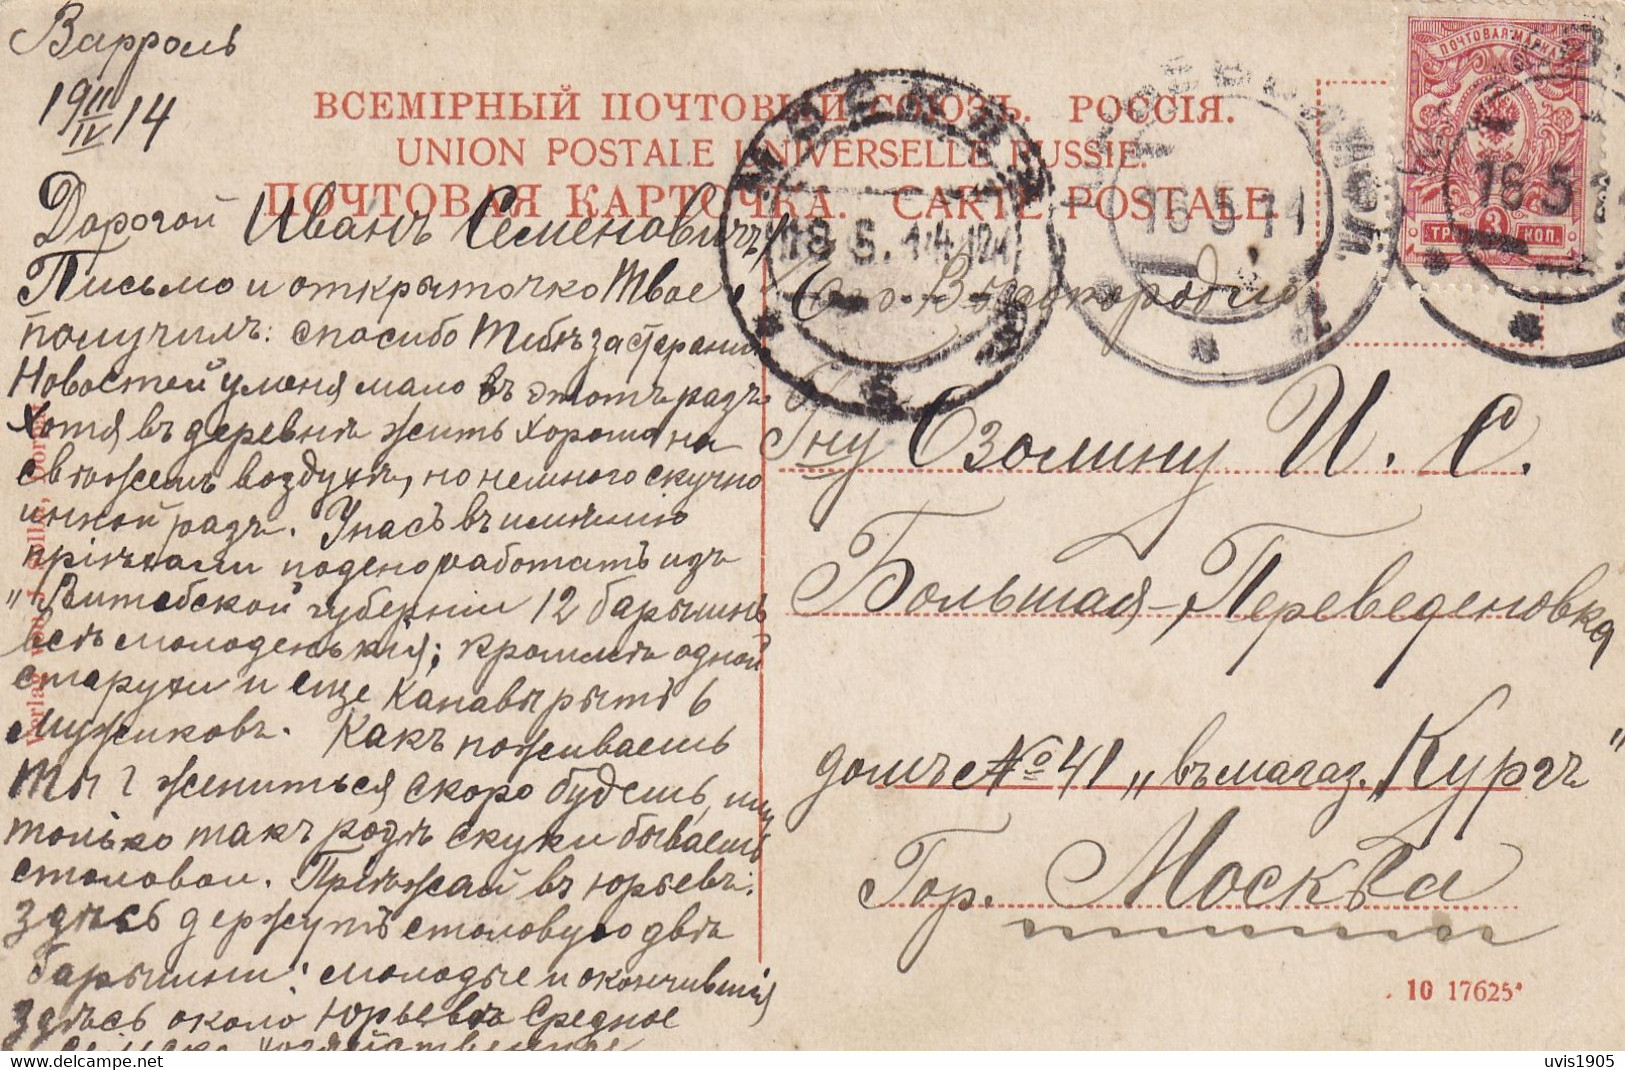 Варроль
19 11/IV 14
ВСЕМІРНЫЙ ПОЧТОВЫЙ СОЮЗЪ. РОССІЯ.
UNION POSTALE UNIVERSELLE RUSSIE.
ПОЧТОВАЯ КАРТОЧКА. CARTE POSTALE.
ПОЧТОВАЯ МАРКА
3
КОП.
МОСКВА
18.5.14
16 5 14
16 5
Дорогой Иванъ Семеновичъ!
Письмо и открыточко Твое
получилъ: спасибо Тебѣ за старание
Новостей у меня мало въ этотъ разъ
Хотя въ деревнѣ жить хорошо на
свѣжемъ воздухѣ, но немного скучно
инной разъ. У насъ въ имѣнию
приѣхали подено работать изъ
"Витебской губерніи 12 барышнь
всѣ молоденькія; кромѣ одной
старухи и еще канавы рытъ 6
мужиковъ. Какъ поживаешь
Ты? жениться скоро будешь, или
только такъ родѣ скуки бываешь
столовои. Пріѣжай въ Юрьевъ:
здѣсь держутъ столовую двѣ
барышни: молодые и окончившія
здѣсь около Юрьевѣ Средное
сельско хозяйственное
Его-Высокородію
Гну Озолину И. С.
Большая-Переведеновка
домъ № 41 „въ магаз. „Кургъ"
Гор. Москва
Verlag von
Dorpat
10 17625*
uvis1905